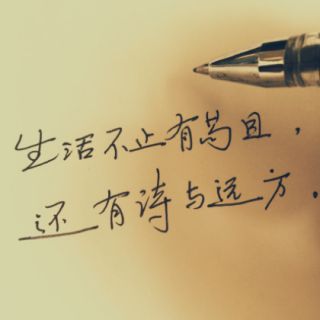 生活不止有苟且，
还有诗与远方.